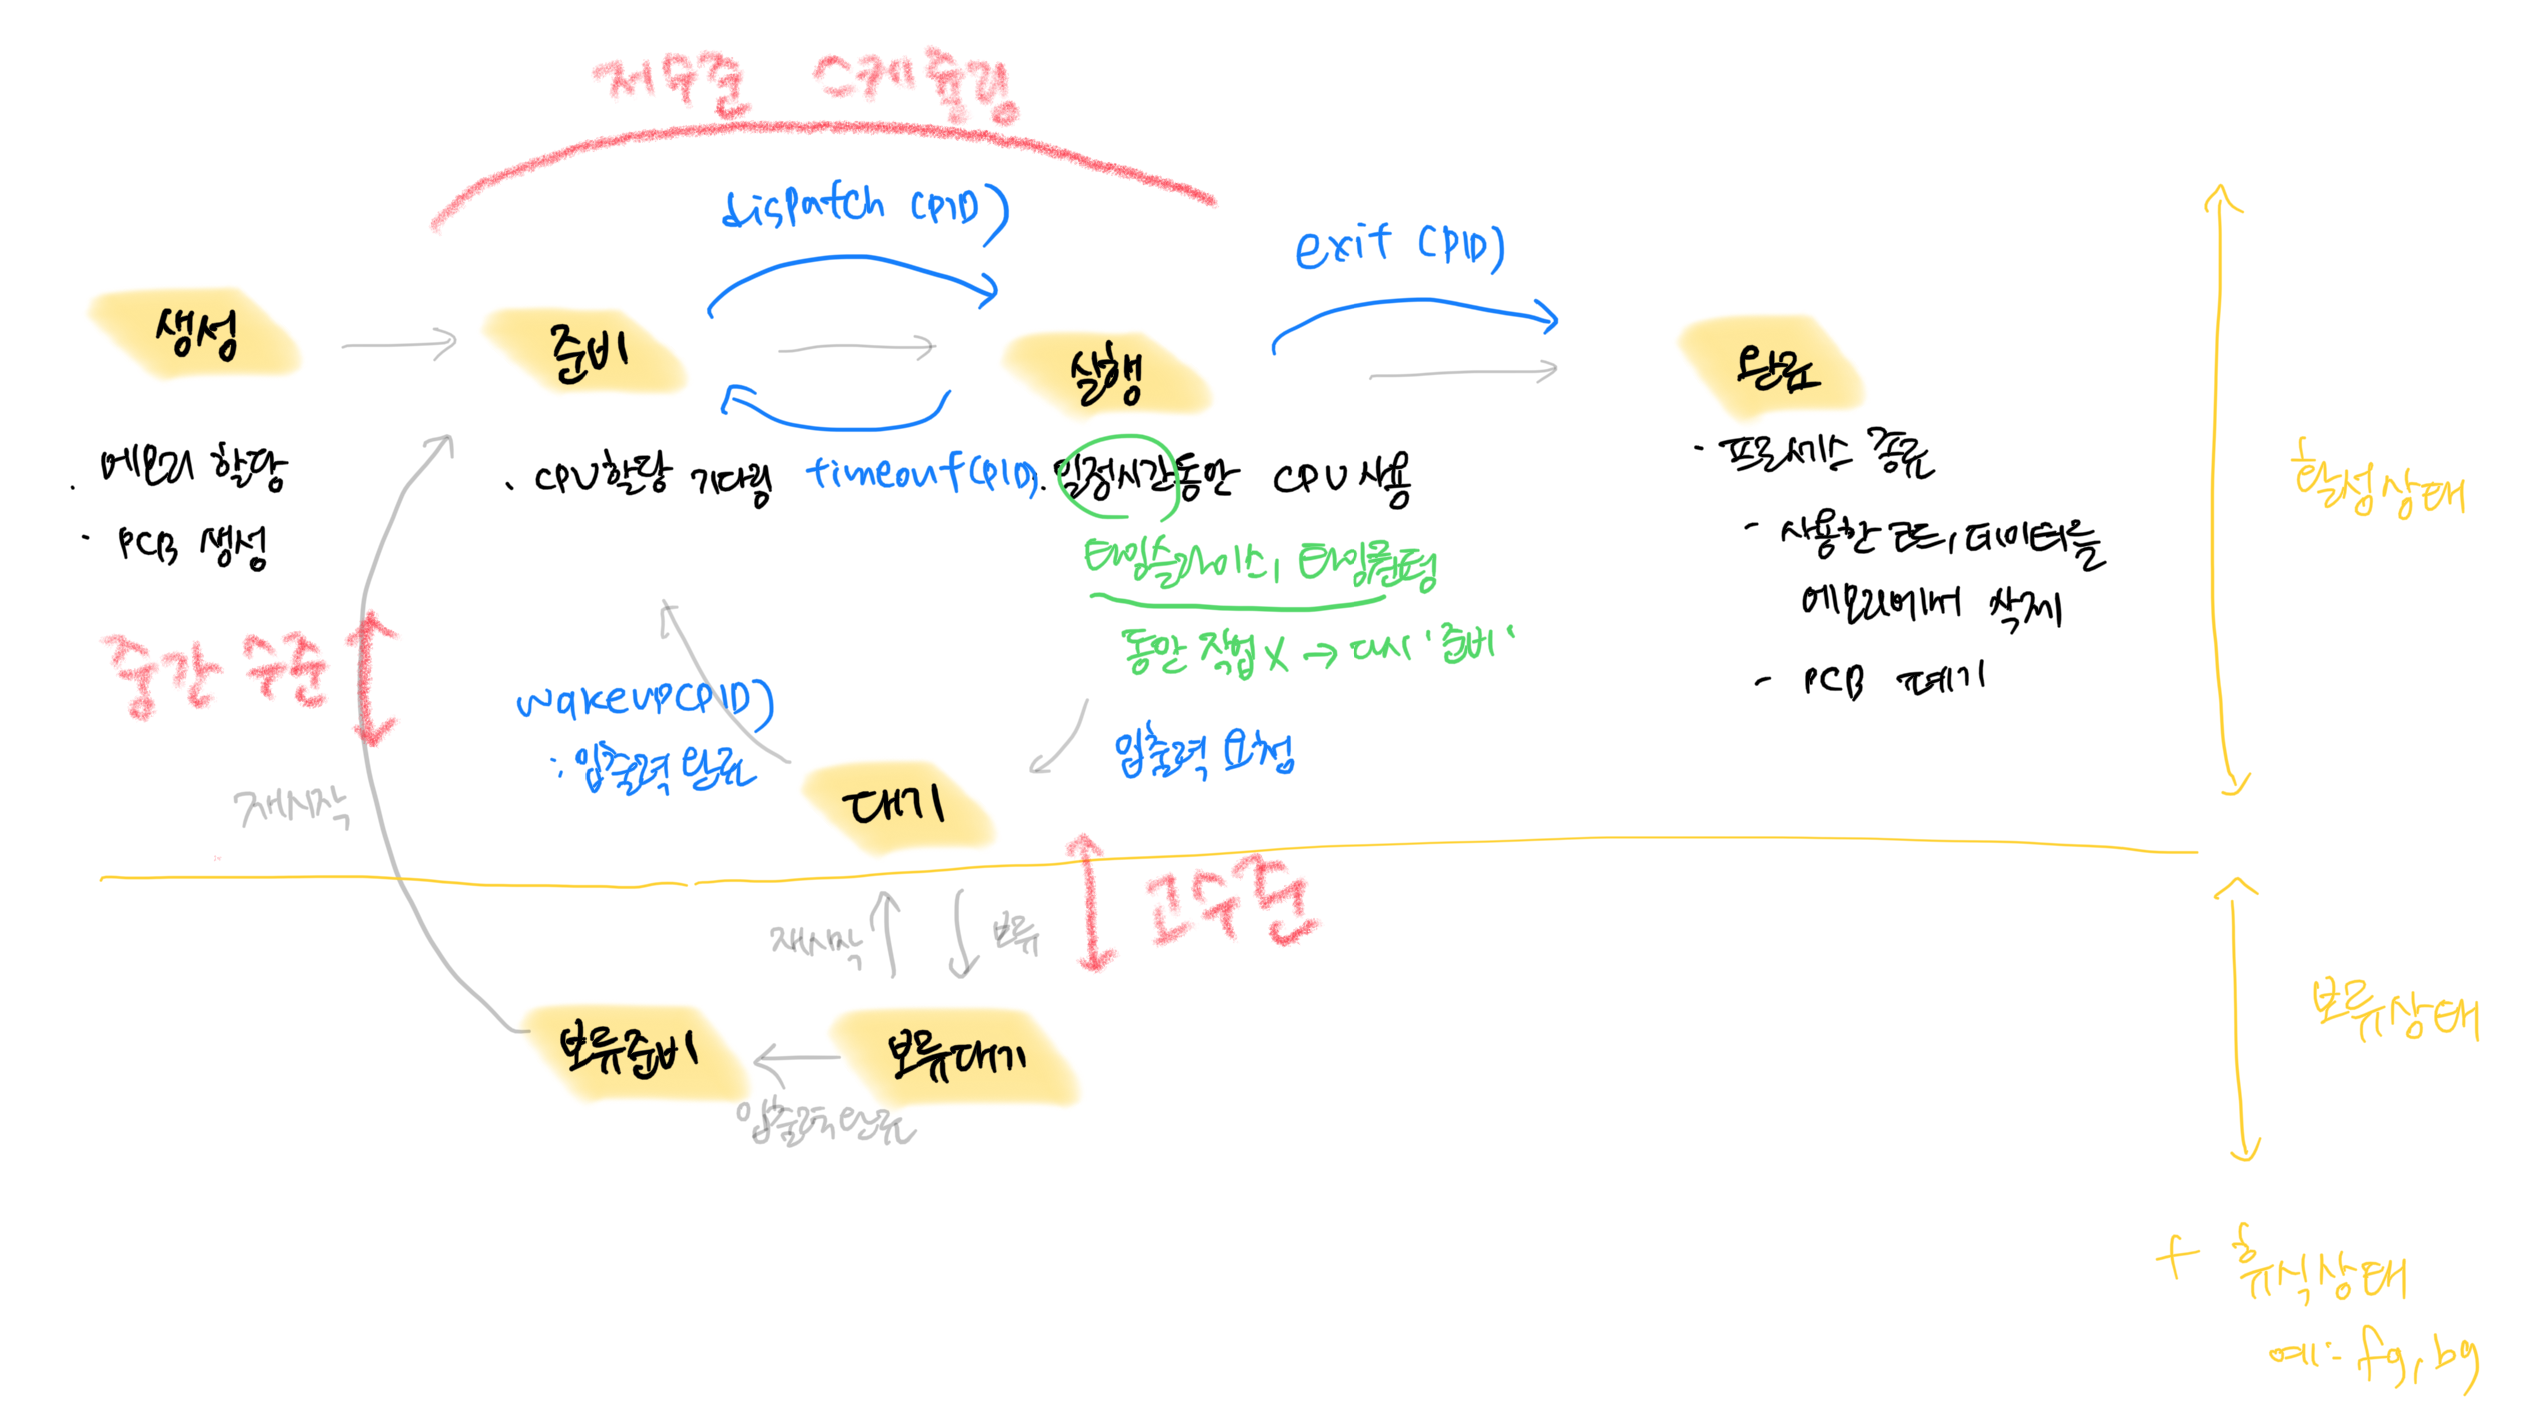 저수준 스케줄링
dispatch (PID)
exit (PID)
생성
준비
실행
완료
· 메모리 할당
· PCB 생성
· CPU할당 기다림
timeout(PID)
· 일정시간동안 CPU 사용
타임슬라이스, 타임퀀텀
동안 작업X → 다시 '준비'
· 프로세스 종류
- 사용한 코드, 데이터를
메모리에서 삭제
- PCB 폐기
활성상태
중간 수준
wakeup(PID)
: 입출력 완료
입출력 요청
재시작
대기
재시작
보류
고수준
보류준비
보류대기
입출력 완료
보류상태
+ 휴식상태
예: fg, bg